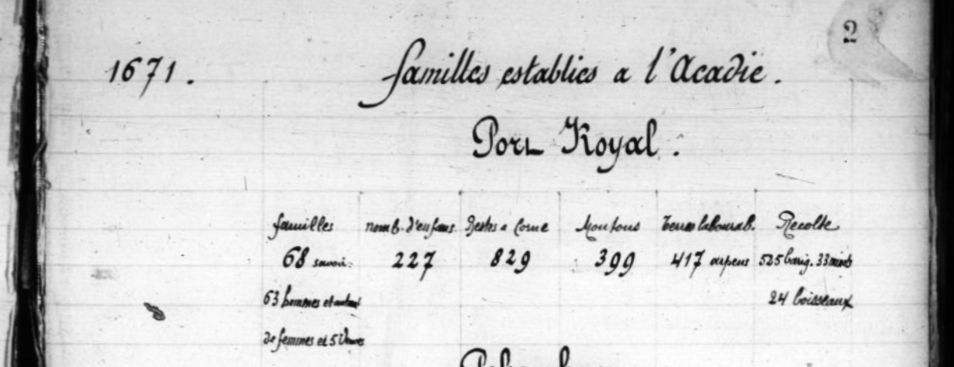 2
1671. familles establies a l'Acadie.
Port Royal.
familles nomb. d'enfans. Bestes a Corne Moutons Terres labourab. Recolte
68 savoir: 227 829 399 417 arpens 525 bariq. 33 minots
63 hommes et autant 24 boisseaux
de femmes et 5 Veuves